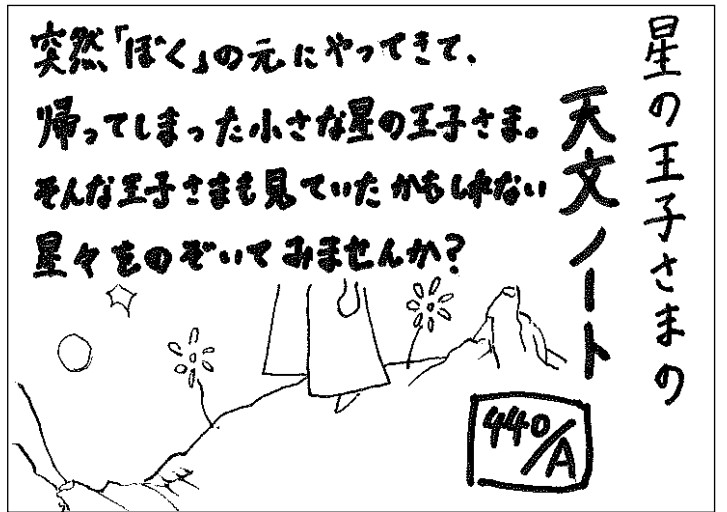 星の王子さまの
天文ノート
突然「ぼく」の元にやってきて、
帰ってしまった小さな星の王子さま。
そんな王子さまも見ていたかもしれない
星々をのぞいてみませんか?
440/A